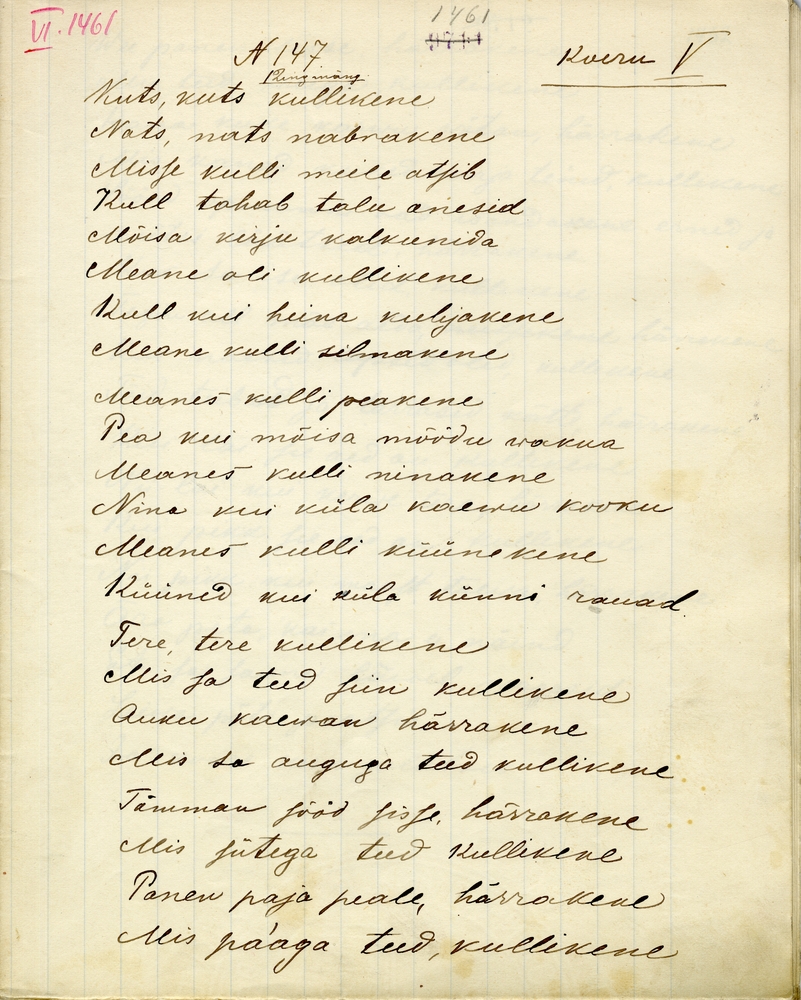 VI. 1461
1461
N 147
Koeru V
Ringmäng
Kuts, kuts kullikene
Nats, nats nabrakene
Misse kulli meile otsib
Kull tahab talu anesid
Mõisa kirju kalkunida
Meane oli kullikene
Kull kui heina kuhjakene
Meane kulli silmakene
Meanes kulli peakene
Pea kui mõisa mõõdu wakka
Meanes kulli ninakene
Nina kui küla kaewu kooku
Meanes kulli küünekene
Küüned kui küla künni rauad.
Tere, tere kullikene
Mis sa teed siin kullikene
Auku kaewan härrakene
Mis sa auguga teed kullikene
Tämman sööd sisse, härrakene
Mis sütega teed kullikene
Panen paja peale, härrakene
Mis pa'aga teed, kullikene